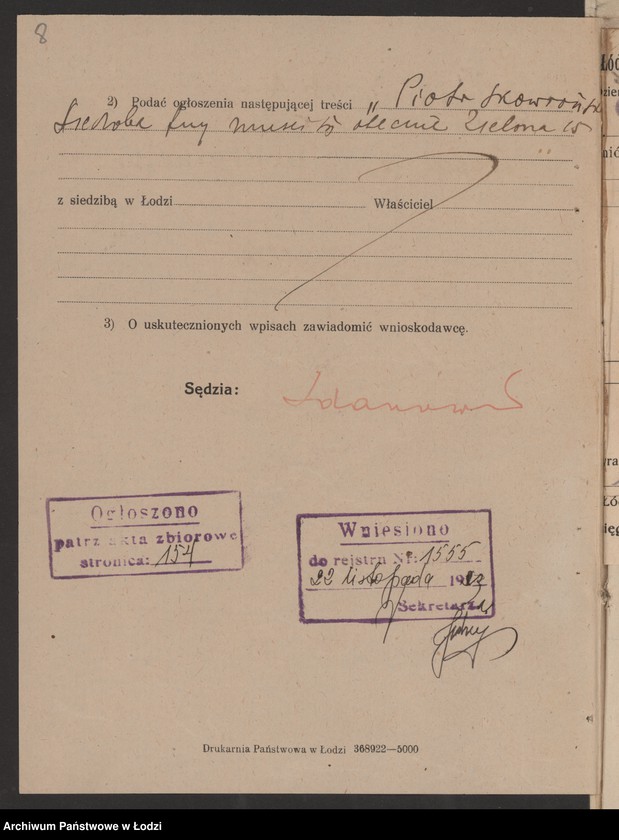 8
2) Podać ogłoszenia następującej treści „ Piotr Skowroń
Siedziba firmy mieści się obecnie Zielona 15
z siedzibą w Łodzi Właściciel
3) O uskutecznionych wpisach zawiadomić wnioskodawcę.
Sędzia:
Ogłoszono
patrz akta zbiorowe
stronica: 154
Wniesiono
do rejstru Nr: 1555
22 listopada 19
Sekretarz
Drukarnia Państwowa w Łodzi 368922—5000
Archiwum Państwowe w Łodzi